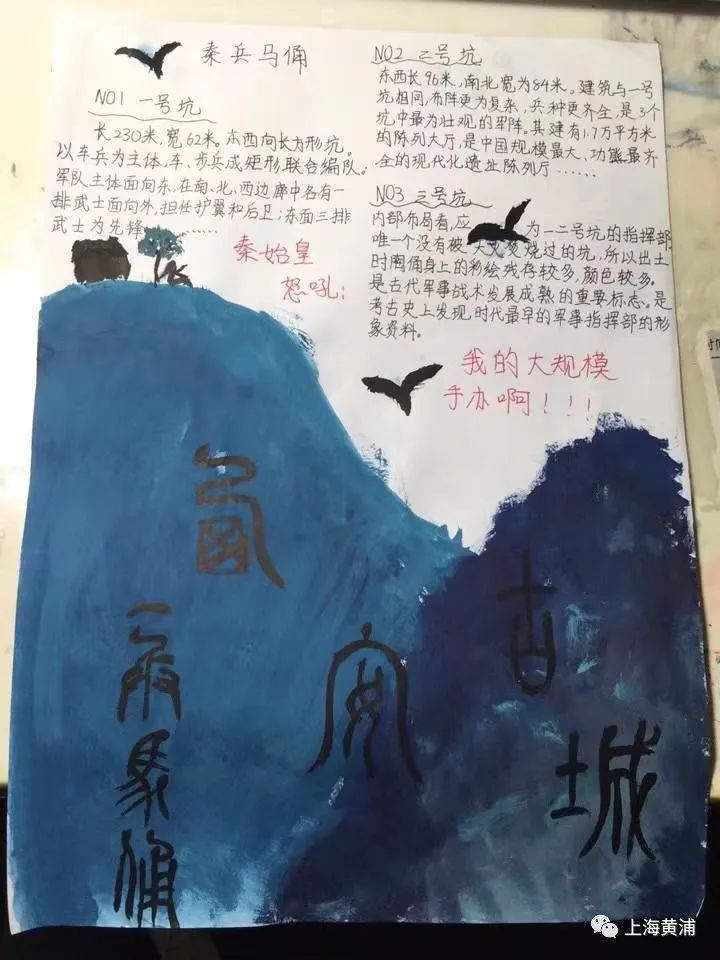 秦兵马俑
NO1 一号坑
长230米,宽62米。东西向长方形坑。
以车兵为主体,车、步兵成矩形联合编队。
军队主体面向东,在南、北、西边廊中各有一
排武士面向外,担任护翼和后卫;东面三排
武士为先锋……
秦始皇
怒吼:
NO2 二号坑
东西长96米,南北宽为84米。建筑与一号
坑相同,布阵更为复杂,兵种更齐全,是3个
坑中最为壮观的军阵。其建有1.7万平方米
的陈列大厅,是中国规模最大、功能最齐
全的现代化遗址陈列厅……
NO3 三号坑
内部布局看,应 为一二号坑的指挥部
唯一个没有被大火焚烧过的坑,所以出土
时陶俑身上的彩绘残存较多,颜色较多。
是古代军事战术发展成熟的重要标志。是
考古史上发现,时代最早的军事指挥部的形
象资料。
我的大规模
手办啊!!!
西安古城
兵马俑
上海黄浦